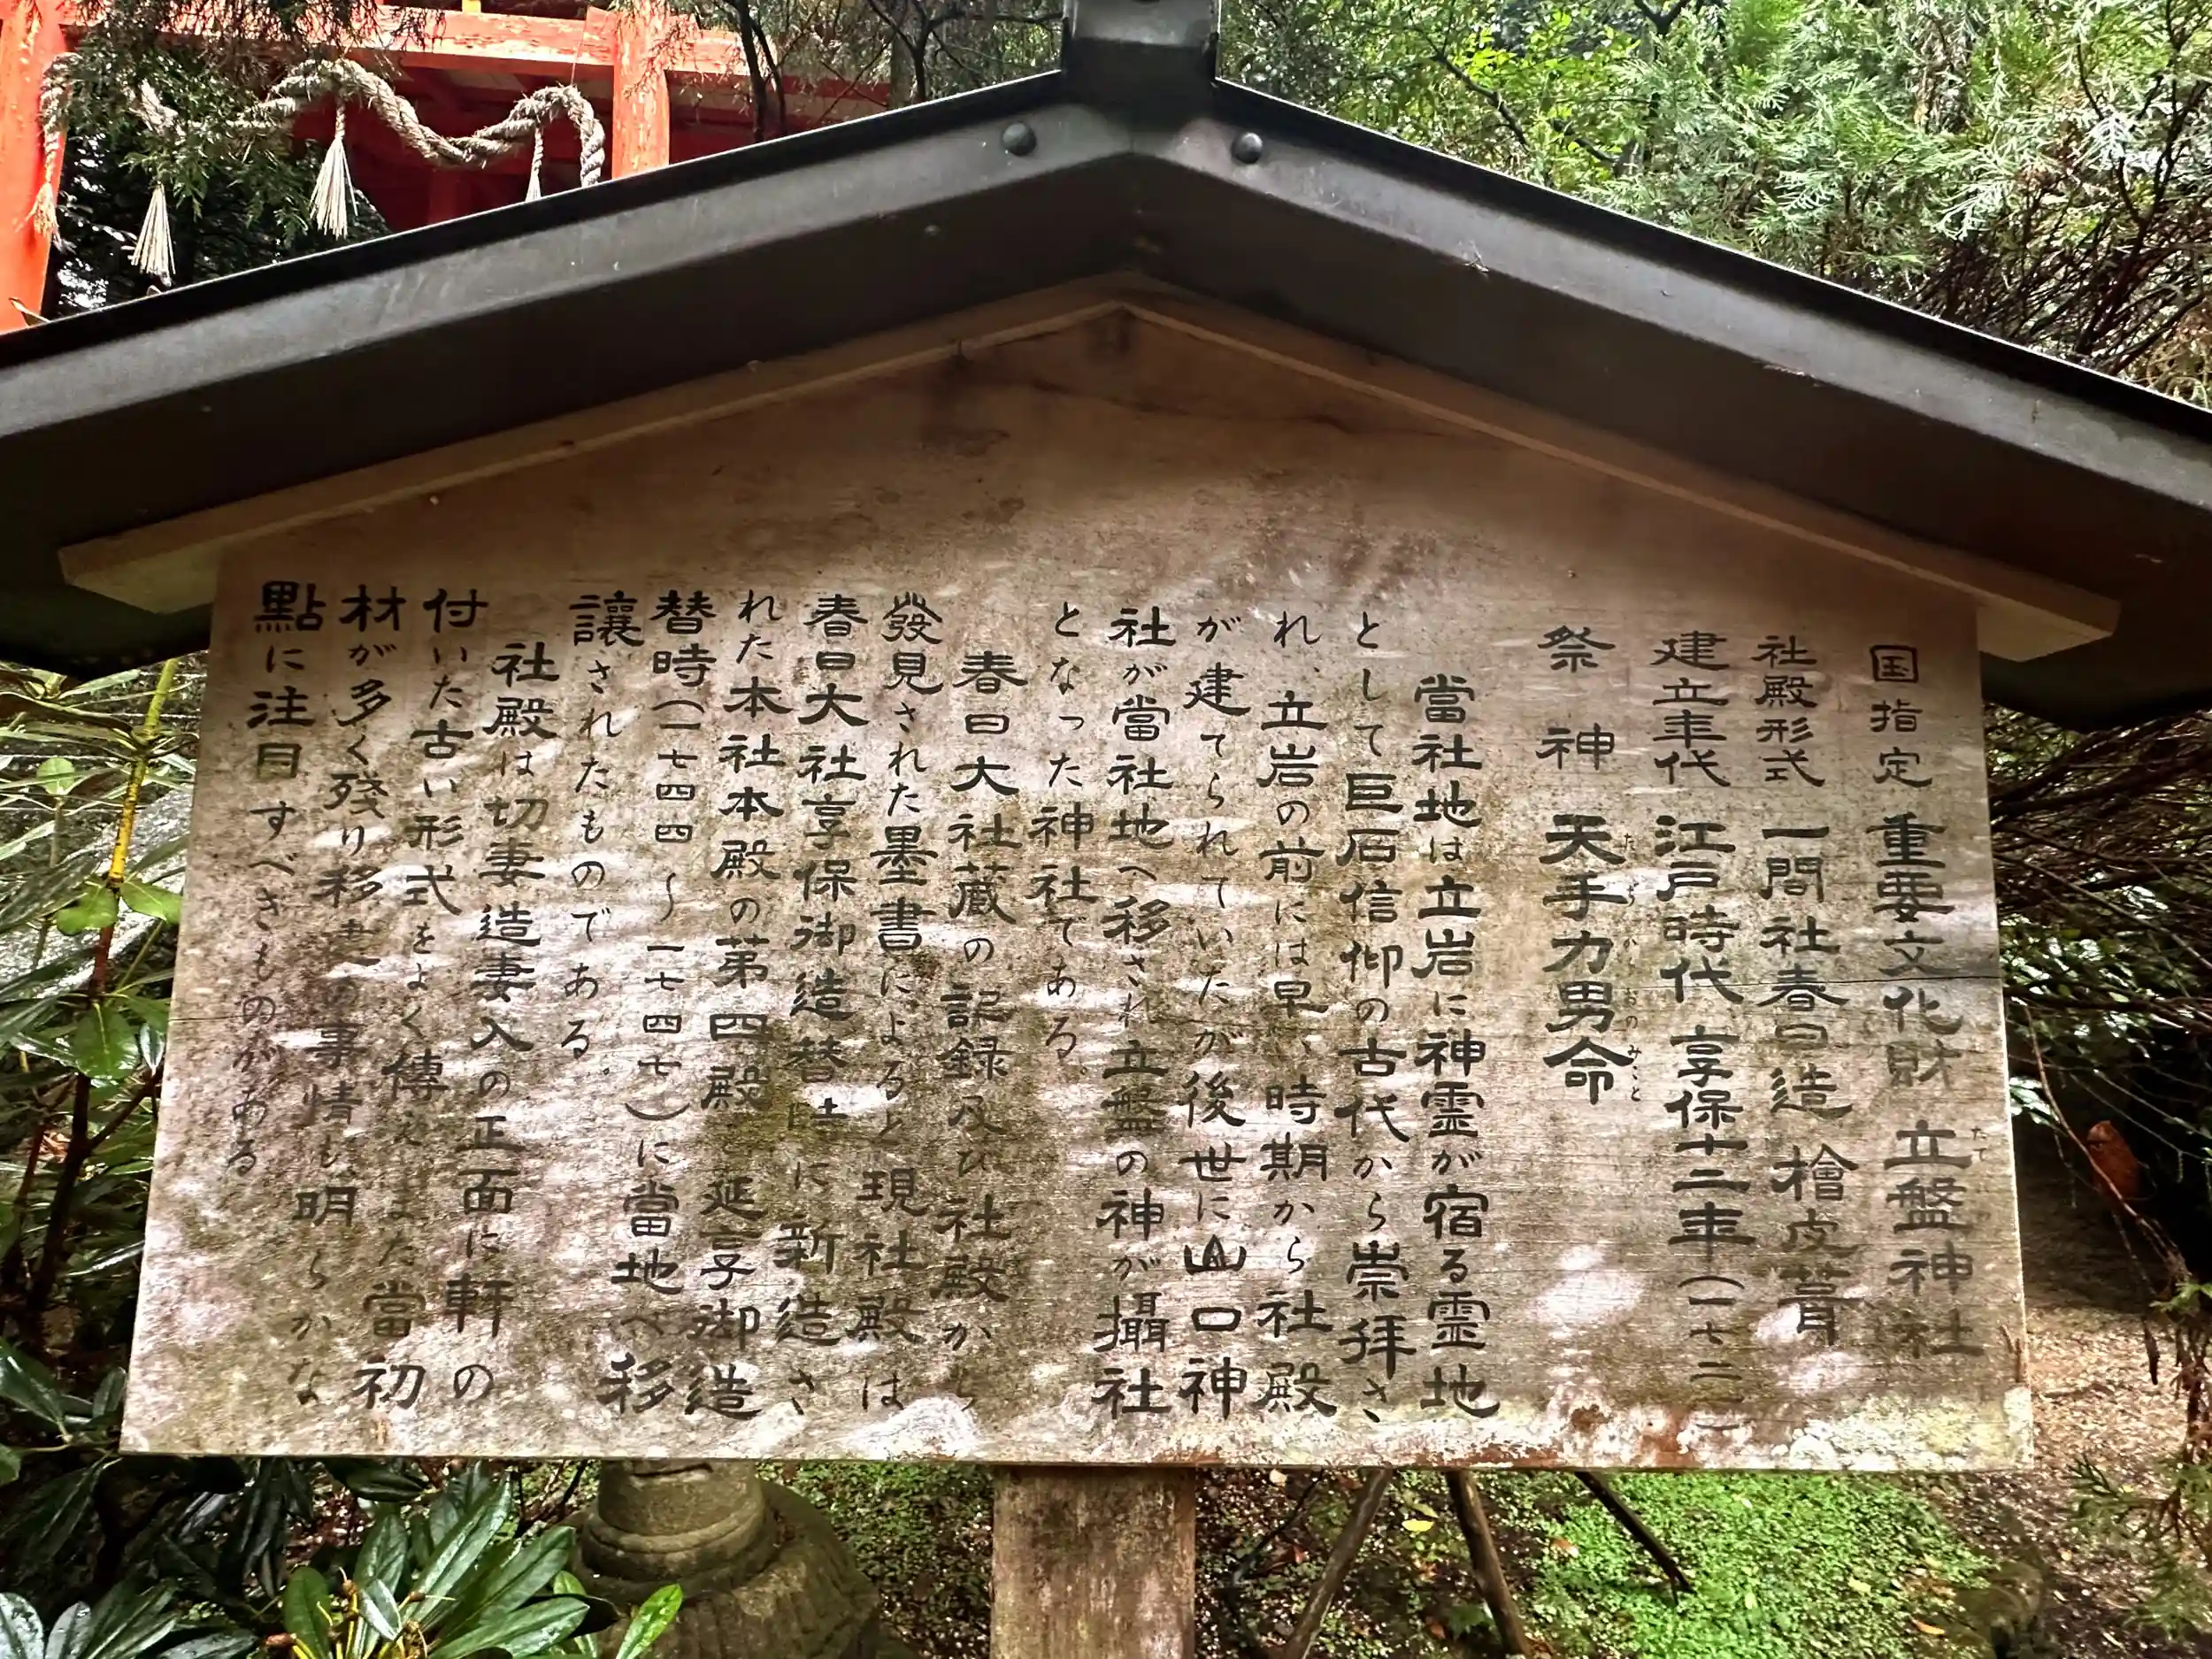 国指定 重要文化財 立盤神社
たて
社殿形式 一間社春日造 檜皮葺
建立年代 江戸時代 享保十二年(一七二
祭神 天手力男命
たぢからおのみこと
當社地は立岩に神霊が宿る霊地
として巨石信仰の古代から崇拝さ
れ、立岩の前には早い時期から社殿
が建てられていたが後世に山口神
社が當社地へ移され立盤の神が攝社
となった神社である。
春日大社蔵の記録及び社殿から
發見された墨書によると現社殿は
春日大社享保御造替時に新造さ
れた本社本殿の第四殿 延享御造
替時(一七四四〜一七四七)に當地へ移
讓されたものである。
社殿は切妻造妻入の正面に軒の
付いた古い形式をよく傳えまた當初
材が多く殘り移 事情も明らかな
點に注目すべきものがある